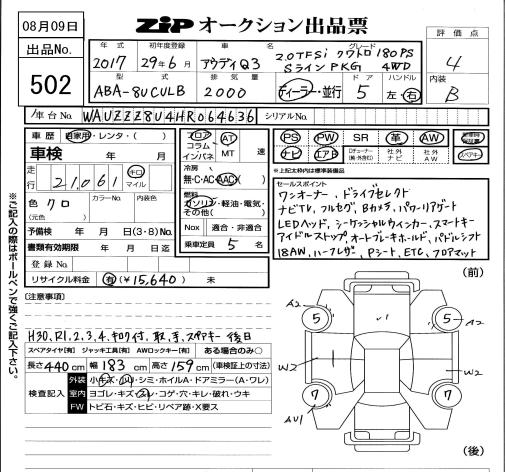 08月09日
ZIP オークション出品票
出品No.
502
年式 初年度登録 車名 グレード
2017 29年6月 アウディQ3 2.0TFSi クワトロ 180PS
SラインPKG 4WD
型式 排気量 ドア ハンドル
ABA-8UCULB 2000 ディーラー・並行 5 左・右
評価点
4
内装
B
車台No. WAUZZZ8U4HR064636 シリアルNo.
車歴 自家用・レンタ・( )
車検 年 月
走行 21,061 キロ マイル
色 クロ カラーNo. 内装色
(元色)
予備検 年 月 日(3・8)No.
書類有効期限 年 月 日迄
登録No.
リサイクル料金 有(¥15,640) 未
フロア
コラム
インパネ
AT
MT 速
冷房
無・C・AC・AAC
燃料
ガソリン・軽油・電気・
その他( )
Nox 適合・非適合
乗車定員 5 名
PS PW SR 革 AW
ナビ エアB 社外ナビ 社外AW スペアキー
※上記太枠内は標準装備品
セールスポイント
ワンオーナー、ドライブセレクト
ナビTV、フルセグ、Bカメラ、パワーリアゲート
LEDヘッド、シーケンシャルウィンカー、スマートキー
アイドルストップ、オートブレーキホールド、パドルシフト
18AW、ハーフレザー、Pシート、ETC、フロアマット
※ご記入の際はボールペンで強くご記入下さい。
(注意事項)
H30,R1,2,3,4,キロク付、取、き、スペアキー後日
スペアタイヤ[有] ジャッキ工具[有] AWロックキー[有] ある場合のみ○
長さ440cm 幅183cm 高さ159cm (車検証上の寸法)
検査記入
外装 小キズ・凹・シミ・ホイルA・ドアミラー(A・ワレ)
室内 ヨゴレ・キズ・スレ・コゲ・穴・キレ・破れ・ウキ
FW トビ石・キズ・ヒビ・リペア跡・X要ス
(前)
A2 5 1 5 A2
W2 1 W2
AU1 7 7
(後)